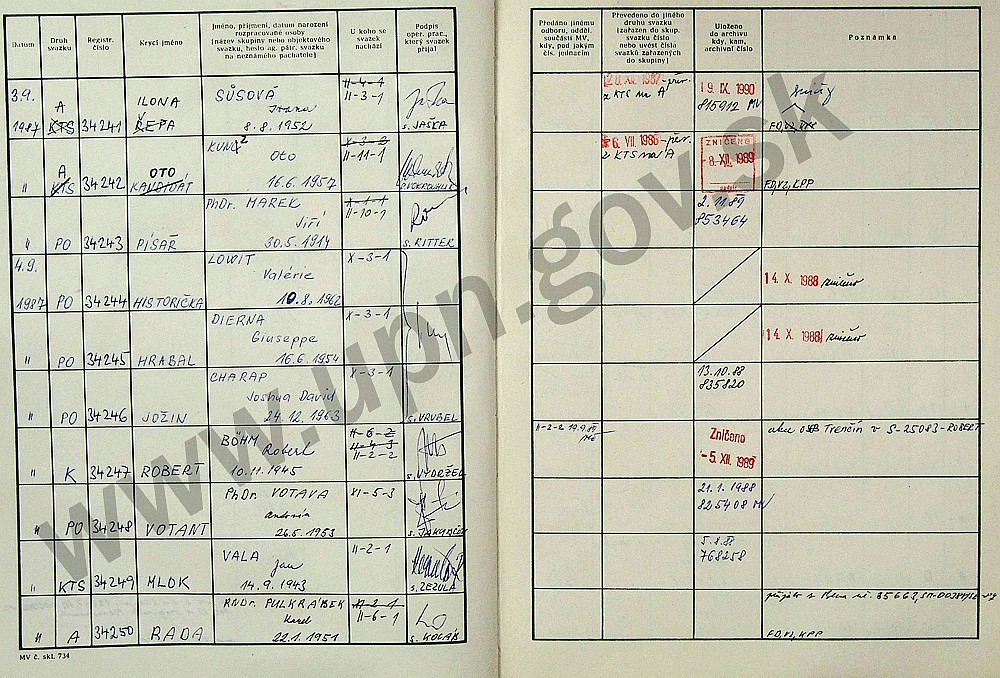 Datum
Druh svazku
Registr. číslo
Krycí jméno
Jméno, příjmení, datum narození
rozpracované osoby
(název skupiny nebo objektového
svazku, heslo ag. pátr. svazku
na neznámého pachatele)
U koho se
svazek
nachází
Podpis
oper. prac.,
který svazek
přijal
Předáno jinému
odboru, odděl.
součásti MV,
kdy, pod jakým
čís. jednacím
Převedeno do jiného
druhu svazku
(zařazen do skup.
svazku číslo
nebo uvést čísla
svazků zařazených
do skupiny)
Uloženo
do archivu
kdy, kam,
archivní číslo
Poznámka
3.9. A ILONA SŮSOVÁ II-4-1
Ivana II-3-1
1987 KTS 34241 ŘEPA 8.8.1952 s. JAŠKA
28. XII. 1987 - přev.
z KTS na A
19. IX. 1990
815912 MV
A OTO KUNC X-3-2
Oto II-11-1
" KTS 34242 KANDIDÁT 16.6.1957
6. VII. 1988 - přev.
z KTS na A
ZNIČENO
8. XII. 1989
FO, VZ, KPP
PhDr. MAREK II-1-1
Jiří II-10-1
" PO 34243 PÍSAŘ 30.5.1914 s. RITTER
2.11.89
853464
4.9. LOWIT X-3-1
Valérie
1987 PO 34244 HISTORIČKA 10.8.1962
14. X. 1988 zničeno
DIERNA X-3-1
Giuseppe
" PO 34245 HRABAL 16.6.1954
14. X. 1988 zničeno
CHARAP X-3-1
Joshua David
" PO 34246 JOŽIN 24.12.1963 s. VRUBEL
13.10.88
835820
BÖHM II-6-2
Robert II-4-3
II-2-2
" K 34247 ROBERT 10.11.1945 s. VYDRŽEL
II-2-2 19.9.89
Zničeno
-5. XII. 1989
akce OSB Trenčín v S-25083-ROBERT
PhDr. VOTAVA XI-5-3
Antonín
" PO 34248 VOTANT 26.5.1953
21.1.1988
825408 MV
VALA II-2-1
Jan
" KTS 34249 MLOK 14.9.1943 s. ZEZULA
768258
RNDr. PULKRÁBEK II-2-1
Karel II-6-1
" A 34250 RADA 22.1.1951 s. KOLÁŘ
FO, VZ, KPP
MV č. skl. 734
www.upn.gov.sk